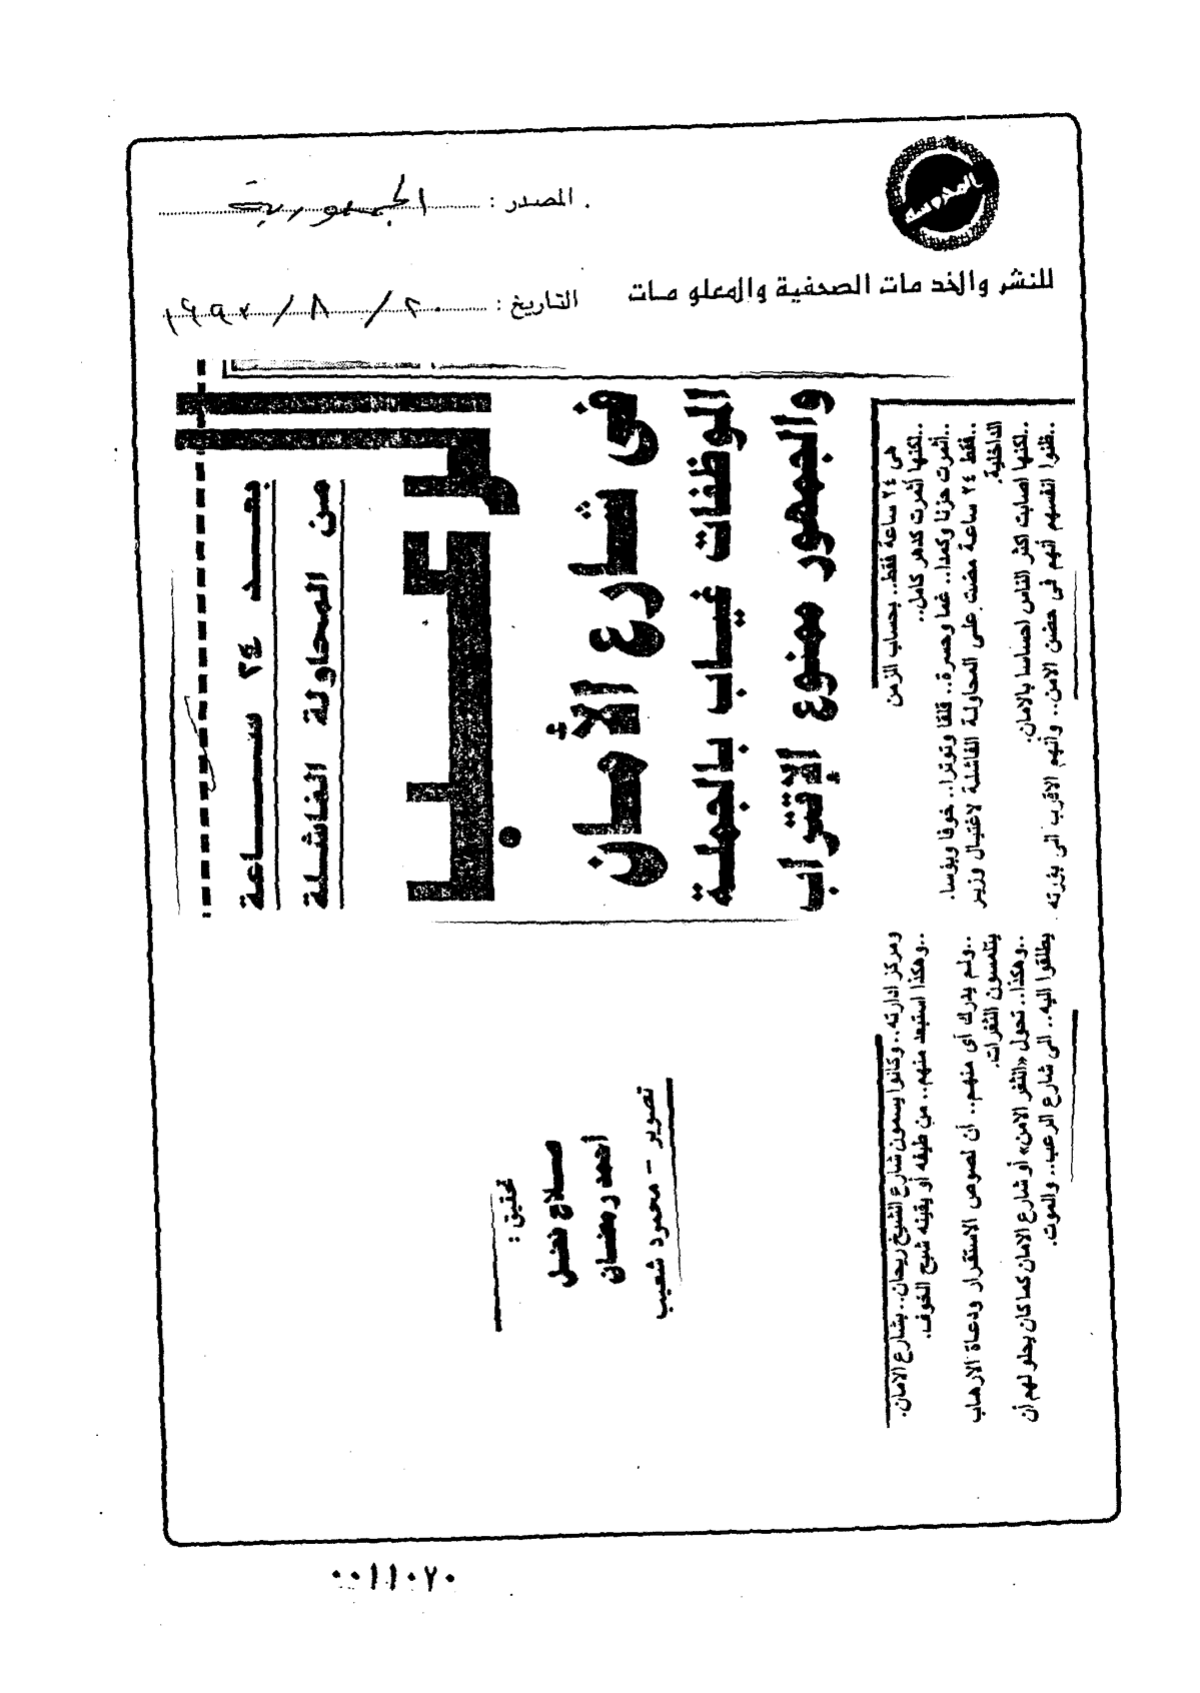 المحروسة
المصدر : الجمهورية
للنشر والخدمات الصحفية والمعلومات
التاريخ : ٢٠ / ٨ / ١٩٩٣
بعد ٢٤ ساعة
من المحاولة الفاشلة
الرعب
فى شارع الأمان
الموظفات غياب بالجملة
والجمهور ممنوع الإقتراب
تحقيق :
صلاح فضل
أحمد رمضان
تصوير - محمود شعيب
هى ٢٤ ساعة فقط.. بحساب الزمن
..لكنها أثمرت كدهر كامل..
..أثمرت حزنا وكمدا.. غما وحسرة.. قلقا وتوترا.. خوفا وبؤسا.
..فقط ٢٤ ساعة مضت على المحاولة الفاشلة لاغتيال وزير
الداخلية.
..لكنها اصابت اكثر الناس احساسا بالامان.
..ظنوا انفسهم انهم فى حضن الامن.. وانهم الاقرب الى بؤرته
ومركز ادارته.. وكانوا يسمون شارع الشيخ ريحان.. بشارع الامان.
..وهكذا استبعد منهم.. من طيفه أو يقينه شبح الخوف.
..ولم يدرك أى منهم.. أن لصوص الاستقرار ودعاة الارهاب
يتلمسون الثغرات.
..وهكذا.. تحول «الثغر الامن» أو شارع الامان كما كان يحلو لهم أن
يطلقوا اليه.. الى شارع الرعب.. والموت.
٠٠١١٠٧٠